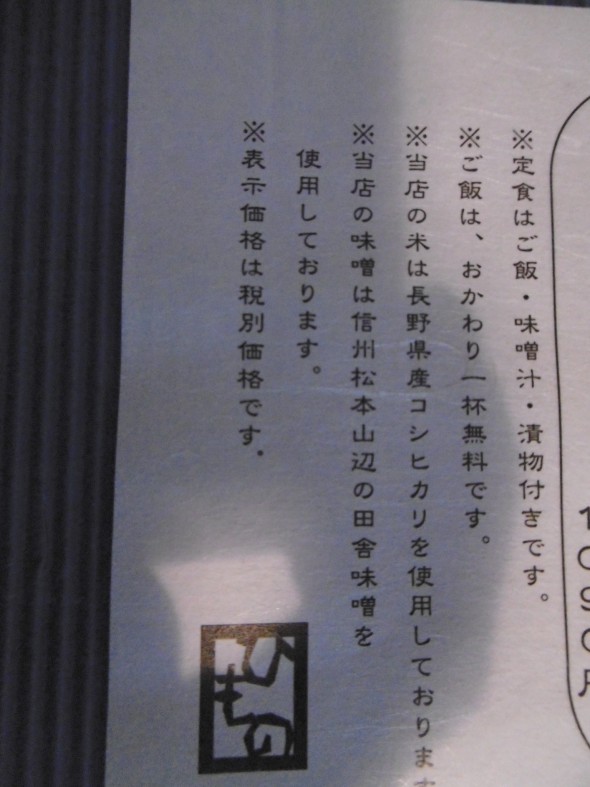 1090円
※定食はご飯・味噌汁・漬物付きです。
※ご飯は、おかわり一杯無料です。
※当店の米は長野県産コシヒカリを使用しております
※当店の味噌は信州松本山辺の田舎味噌を
使用しております。
※表示価格は税別価格です。
ひもの